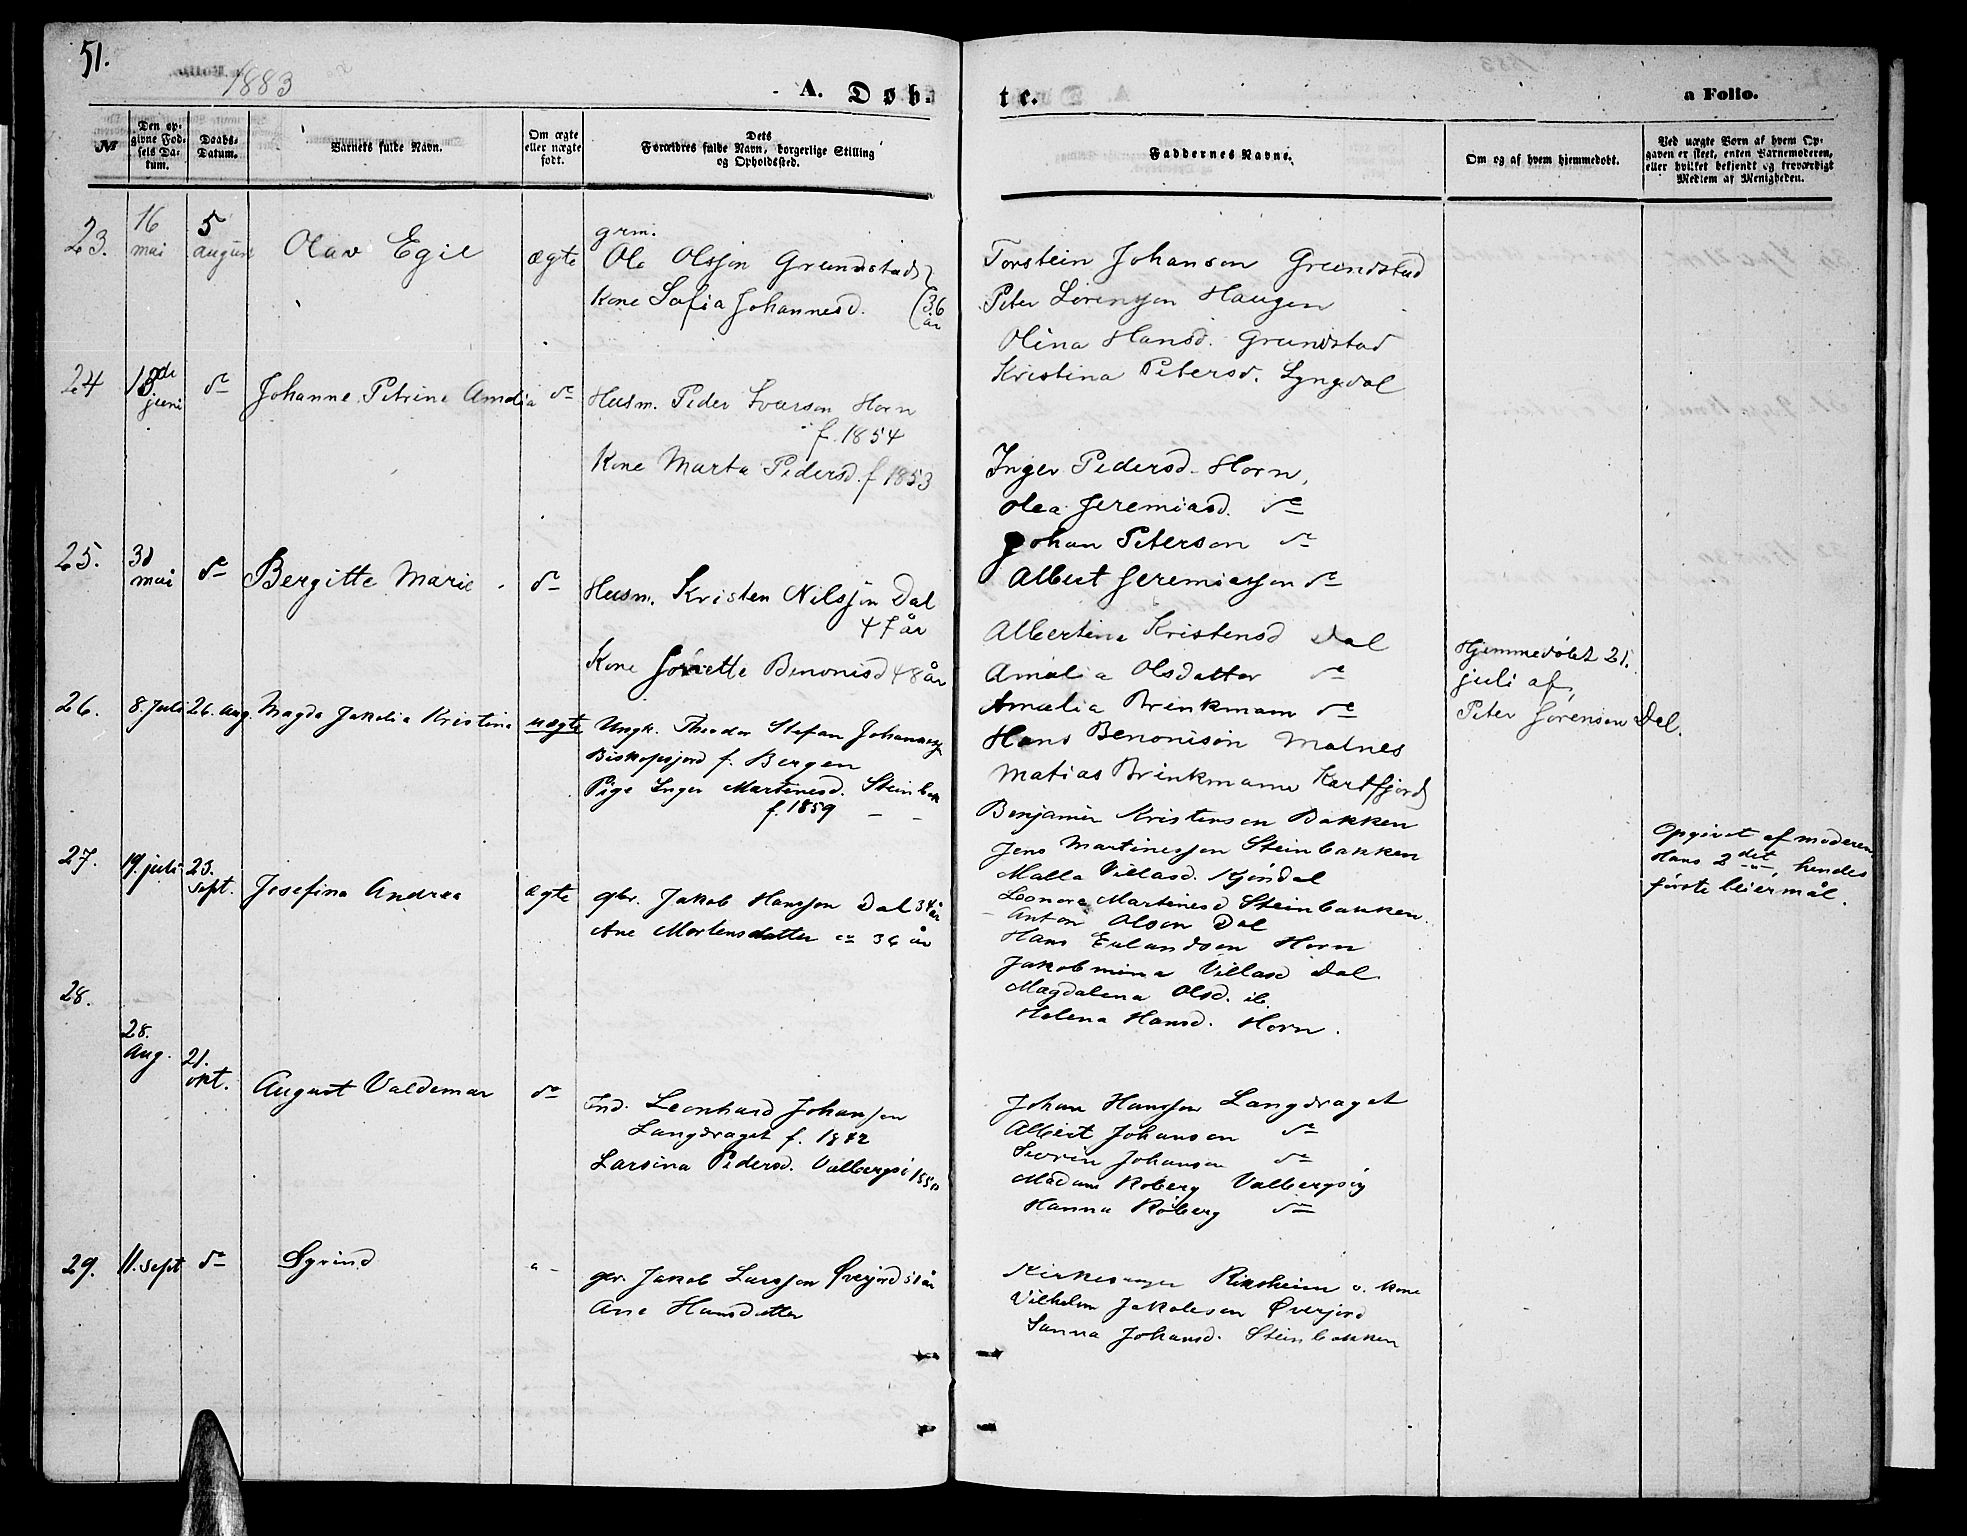 51.
1883
A. Døb-
te.
a Folio.
№
Den op-
givne Fød-
sels Da-
tum.
Daabs-
Datum.
Barnets fulde Navn.
Om ægte
eller uægte
født.
Dets
Forældres fulde Navn, borgerlige Stilling
og Opholdssted.
Faddernes Navne.
Om og af hvem hjemmedøbt.
Ved uægte Børn af hvem Op-
gaven er skeet, enten Barnemoderen,
eller hvilket bekjendt og troværdigt
Medlem af Menigheden.
23.
16
mai
5
august
Olav Egil
ægte
grm.
Ole Olsson Grundstad
Kone Sofia Johannesd. (36
år
Torstein Johanson Grundstad
Peter Lorensson Haugen
Olina Hansd. Grundstad
Kristina Petersd. Lyngdal
24
juni
do
Johanne Petrine Amalia
do
Husm. Peder Ivarson Horn
f. 1854
Kone Marta Pedersd. f 1853
Inger Pedersd. Horn,
Olea Jeremiasd. do
Johan Peterson do
Albert Jeremiasson do
25.
30
mai
do
Bergitte Marie
do
Husm. Kristen Nilsson Dal
47 år
Kone Benonisd 48 år
Albertine Kristensd Dal
Amalia Olsdatter do
Amalia Brinkmann do
Hans Benonison Malnes
Matias Brinkmann Kartfjord
Hjemmedøbt 21.
juli af,
Peter Sørenson Dal.
26.
8. Juli
26. Aug.
Magda Jakobia Kristina
uægte
Ungk. Theodor Stefan Johanness
Biskopsjord f. Bergen
Pige Inger Martinesd. Steinbak
f. 1859
Benjamin Kristenson Bakken
Jens Martinesson Steinbakken
Malla Villasd. Kjøndal
Leonora Martinesd Steinbakken.
Opgivet af moderen
Hans 2det, hendes
første leiermål.
27.
19. juli
23.
Sept.
Josefina Andrea
ægte
gbr. Jakob Hansson Dal 34 år
Ane Mortensdatter 36 år
Anton Olson Dal
Hans Erlandson Horn
Jakobmina Villasd Dal.
Magdalena Olsd. ib.
Helena Hansd. Horn.
28.
28.
Aug.
21.
okt.
August Valdemar
do
Ind. Leonhard Johansson
Langdraget f. 1842
Larsina Pedersd. Valbergsv 1850
Johan Hansson Langdraget
Albert Johanson do
Severin Johanson do
Madam Røberg Valbergsvg
Hanna Røberg do
29.
11. sept
do
Øyvind
gbr. Jakob Larsson Øverjord 51 år
Ane Hansdatter
Kirkesanger Rinsheim o. kone
Vilhelm Jakobson Øverjord
Sanna Johansd. Steinbakken